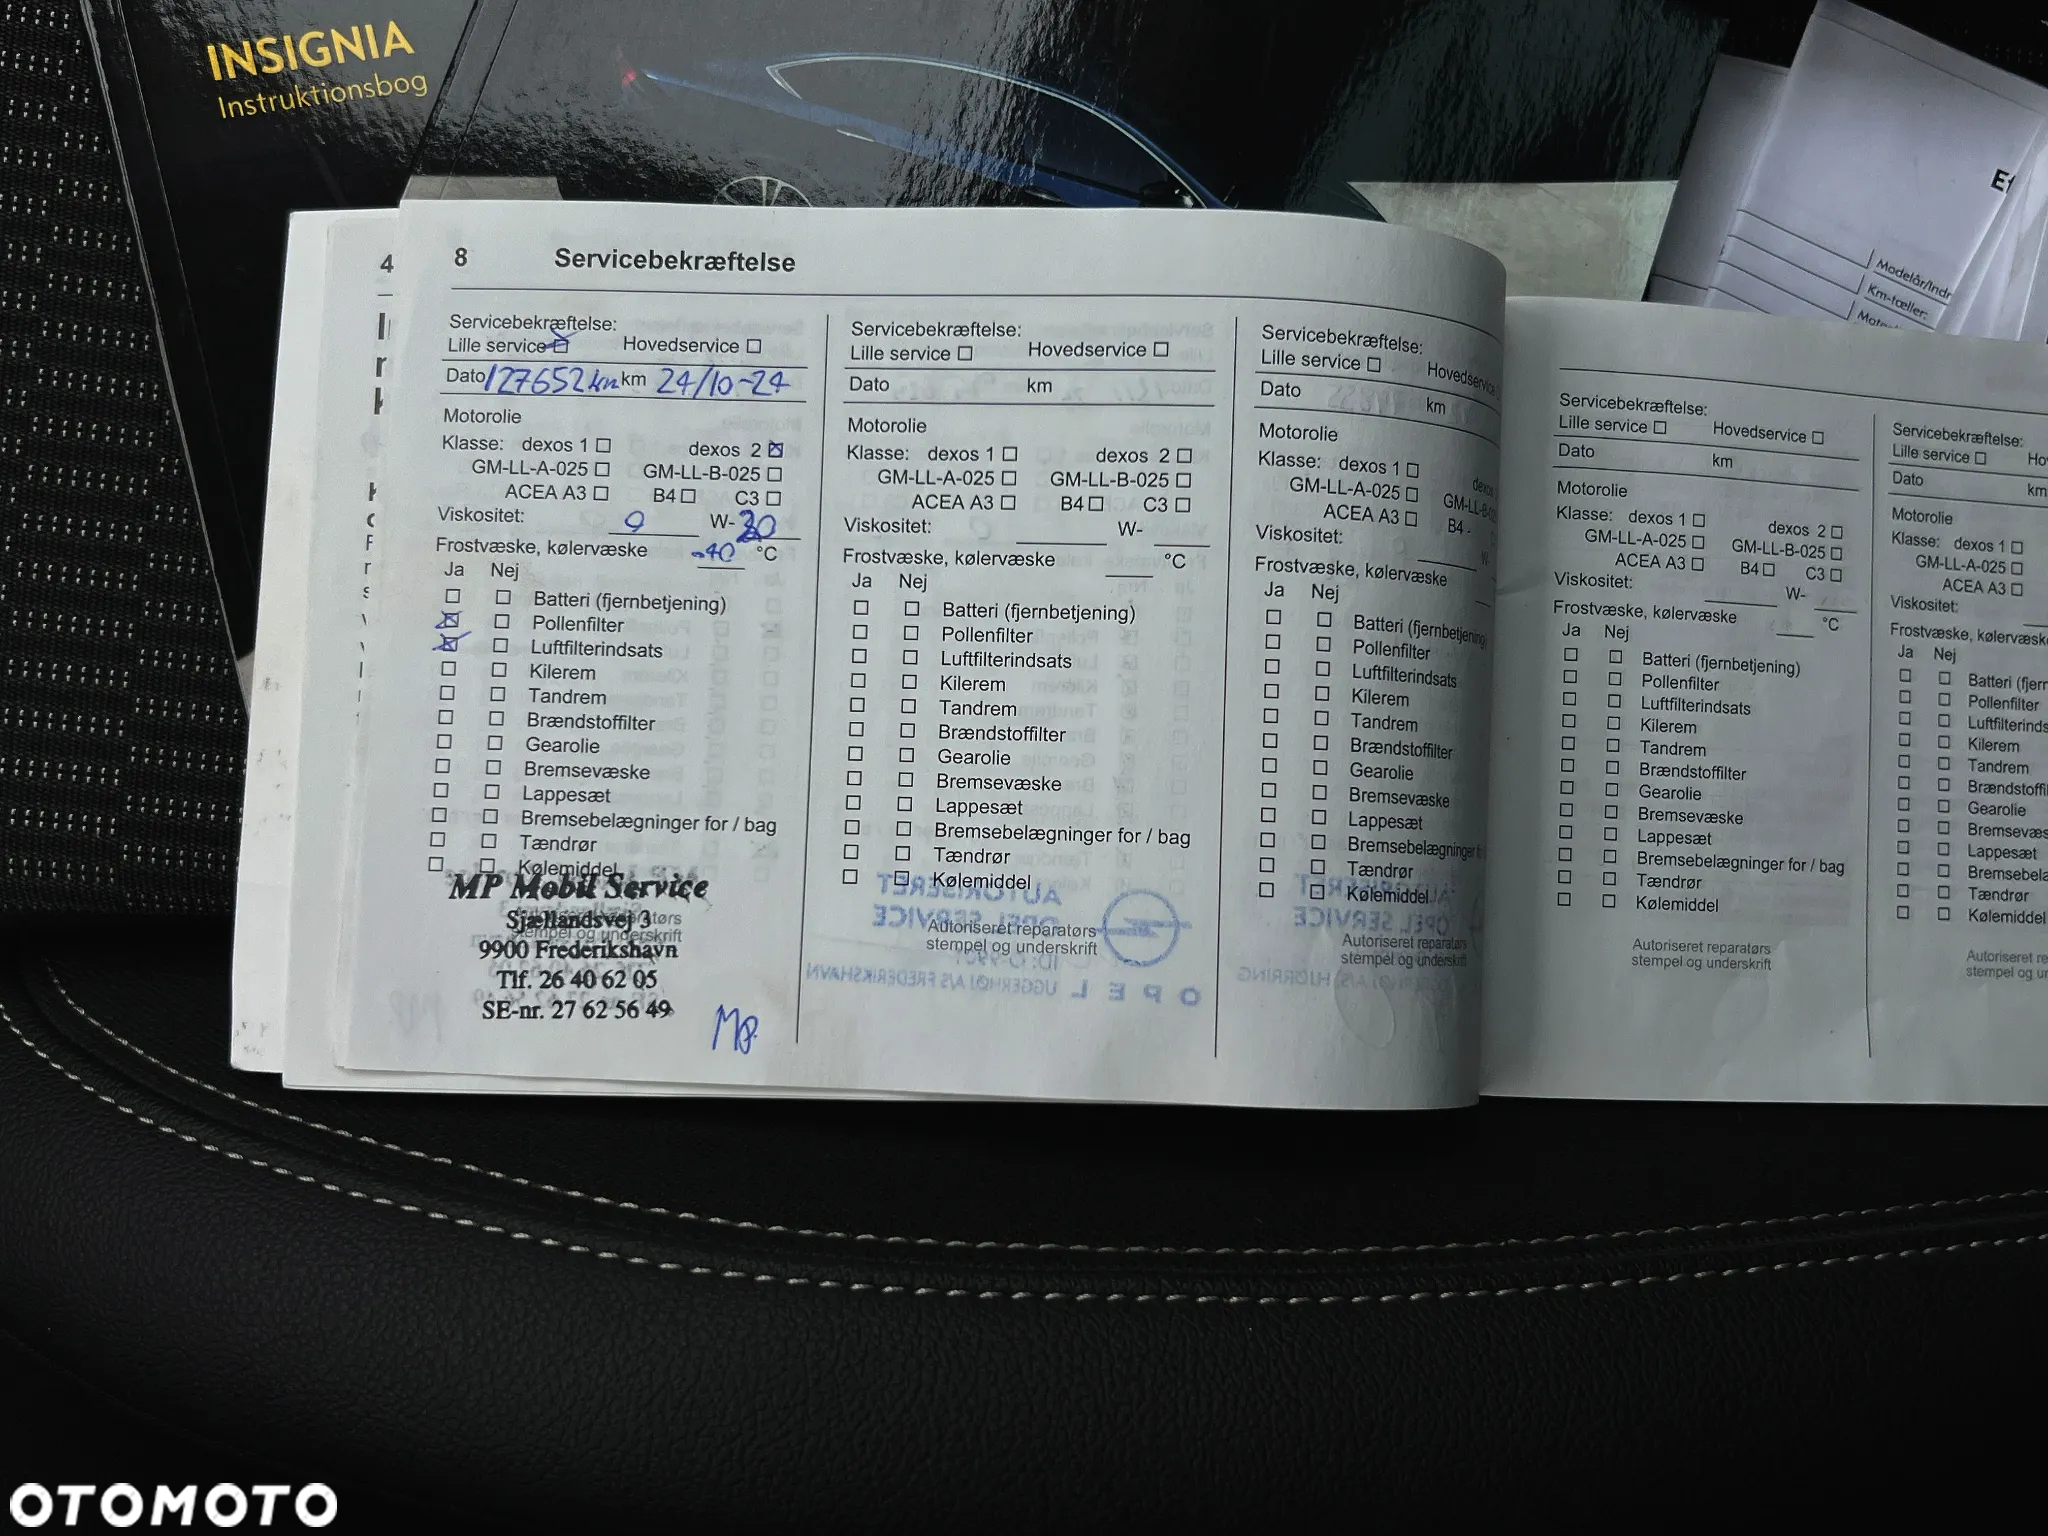 INSIGNIA
Instruktionsbog
Modelår/Indr
Km-tæller:
4
8 Servicebekræftelse
Servicebekræftelse:
Lille service Hovedservice
Dato 127652 km km 24/10-24
Motorolie
Klasse: dexos 1 dexos 2
GM-LL-A-025 GM-LL-B-025
ACEA A3 B4 C3
Viskositet: 0 W-30
Frostvæske, kølervæske -40 °C
Ja Nej
Batteri (fjernbetjening)
Pollenfilter
Luftfilterindsats
Kilerem
Tandrem
Brændstoffilter
Gearolie
Bremsevæske
Lappesæt
Bremsebelægninger for / bag
Tændrør
Kølemiddel
MP Mobil Service
Sjællandsvej 3
stempel og underskrift
9900 Frederikshavn
Tlf. 26 40 62 05
SE-nr. 27 62 56 49
MP.
Servicebekræftelse:
Lille service Hovedservice
Dato km
Motorolie
Klasse: dexos 1 dexos 2
GM-LL-A-025 GM-LL-B-025
ACEA A3 B4 C3
Viskositet: W-
Frostvæske, kølervæske °C
Ja Nej
Batteri (fjernbetjening)
Pollenfilter
Luftfilterindsats
Kilerem
Tandrem
Brændstoffilter
Gearolie
Bremsevæske
Lappesæt
Bremsebelægninger for / bag
Tændrør
Kølemiddel
Autoriseret reparatørs
stempel og underskrift
Servicebekræftelse:
Lille service Hovedservice
Dato km
Motorolie
Klasse: dexos 1 dexos
GM-LL-A-025 GM-LL-B-025
ACEA A3 B4
Viskositet: W-
Frostvæske, kølervæske
Ja Nej
Batteri (fjernbetjening
Pollenfilter
Luftfilterindsats
Kilerem
Tandrem
Brændstoffilter
Gearolie
Bremsevæske
Lappesæt
Bremsebelægninger f
Tændrør
Kølemiddel
Autoriseret reparatørs
stempel og underskrift
Servicebekræftelse:
Lille service Hovedservice
Dato km
Motorolie
Klasse: dexos 1 dexos 2
GM-LL-A-025 GM-LL-B-025
ACEA A3 B4 C3
Viskositet: W-
Frostvæske, kølervæske °C
Ja Nej
Batteri (fjernbetjening)
Pollenfilter
Luftfilterindsats
Kilerem
Tandrem
Brændstoffilter
Gearolie
Bremsevæske
Lappesæt
Bremsebelægninger for / bag
Tændrør
Kølemiddel
Autoriseret reparatørs
stempel og underskrift
Servicebekræftelse:
Lille service Ho
Dato km
Motorolie
Klasse: dexos 1
GM-LL-A-025
ACEA A3
Viskositet:
Frostvæske, kølervæsk
Ja Nej
Batteri (fjern
Pollenfilter
Luftfilterinds
Kilerem
Tandrem
Brændstoffi
Gearolie
Bremsevæs
Lappesæt
Bremsebel
Tændrør
Kølemiddel
Autoriseret re
stempel og u
OTOMOTO